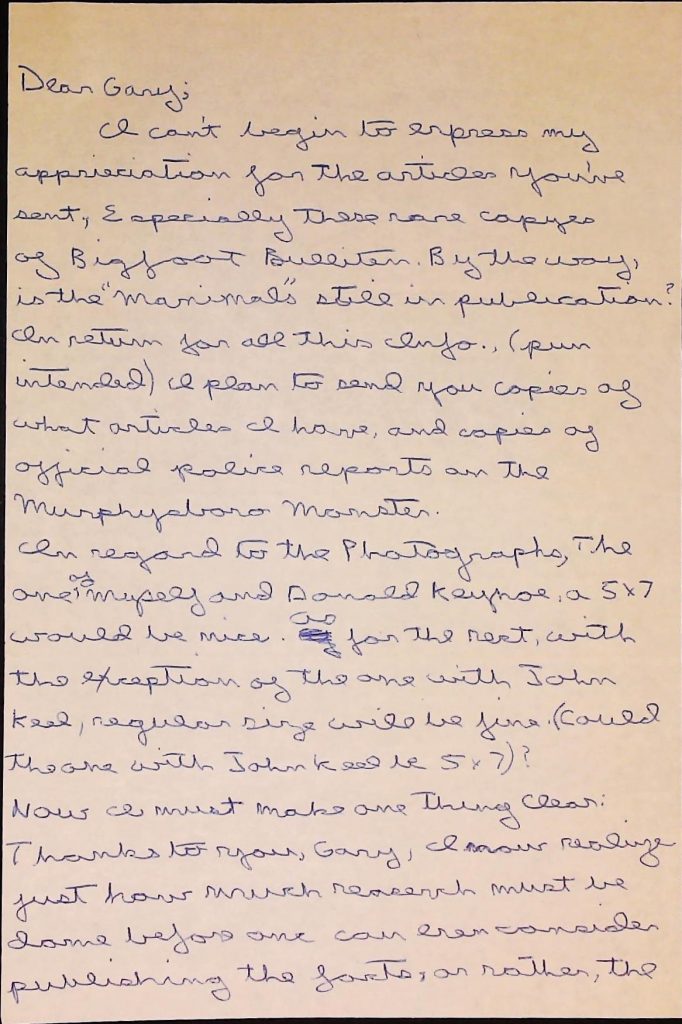 Dear Gary;
I can't begin to express my
apprieciation for the articles you've
sent, Especially these rare copyes
of Bigfoot Bulliten. By the way,
is the "Manimals" still in publication?
In return for all this Info., (pun
intended) I plan to send you copies of
what articles I have, and copies of
official police reports on the
Murphysboro Monster.
In regard to the Photographs, The
one of Myself and Donald Keyhoe, a 5x7
would be nice. As for the rest, with
the exception of the one with John
Keel, regular size will be fine. (Could
the one with John Keel be 5x7)?
Now I must make one Thing Clear:
Thanks to you, Gary, I now realize
just how much research must be
done before one can even consider
publishing the facts, or rather, the